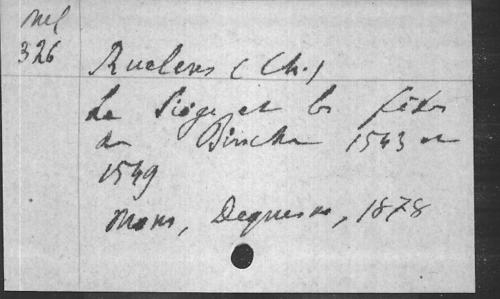 Mel
326
Ruelens (Ch.)
Le Siège et les fêtes
de Binche 1543 et
1549
Mons, Dequesne, 1878